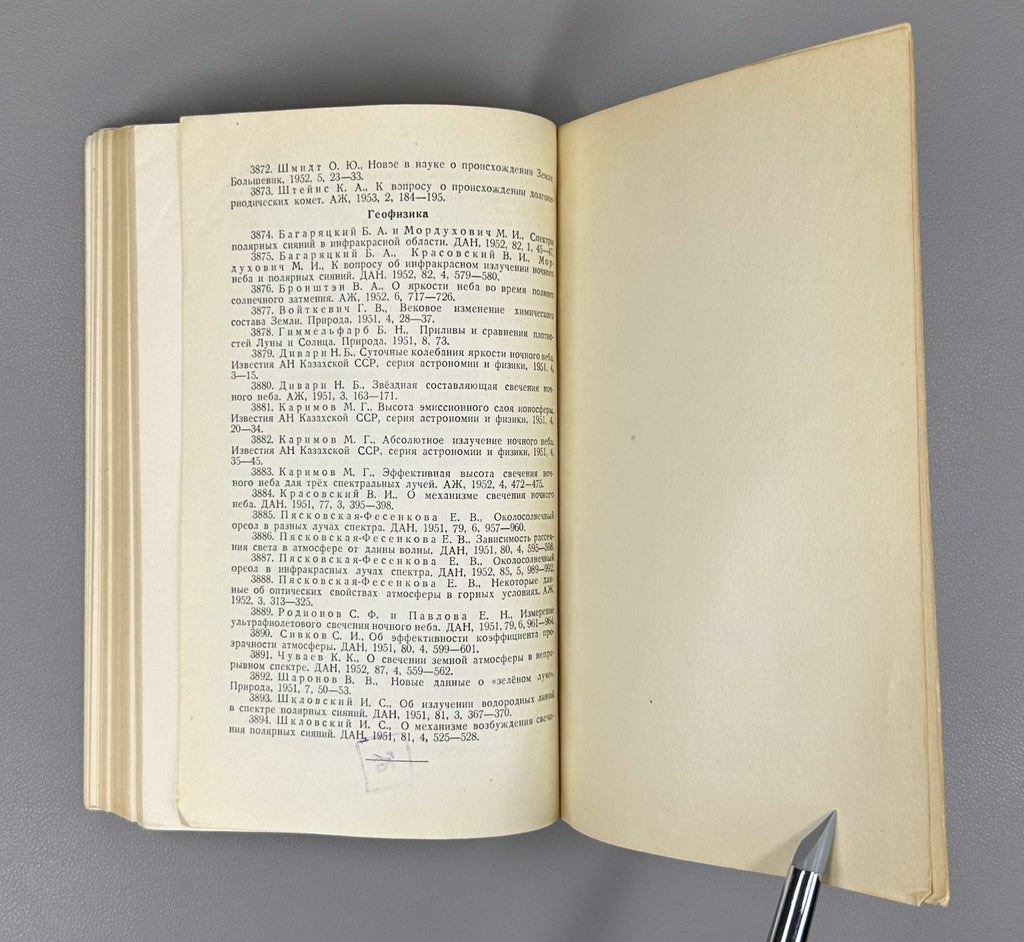 3872. Шмидт О. Ю., Новое в науке о происхождении Земли,
Большевик, 1952, 5, 23—33.
3873. Штейнс К. А., К вопросу о происхождении долгопе-
риодических комет. АЖ, 1953, 2, 184—195.
Геофизика
3874. Багаряцкий Б. А. и Мордухович М. И., Спектры
полярных сияний в инфракрасной области. ДАН, 1952, 82, 1, 45—47.
3875. Багаряцкий Б. А., Красовский В. И., Мор-
духович М. И., К вопросу об инфракрасном излучении ночного
неба и полярных сияний. ДАН, 1952, 82, 4, 579—580.
3876. Бронштэн В. А., О яркости неба во время полного
солнечного затмения. АЖ, 1952, 6, 717—726.
3877. Войткевич Г. В., Вековое изменение химического
состава Земли. Природа, 1951, 4, 28—37.
3878. Гиммельфарб Б. Н., Приливы и сравнения плотно-
стей Луны и Солнца. Природа, 1951, 8, 73.
3879. Дивари Н. Б., Суточные колебания яркости ночного неба.
Известия АН Казахской ССР, серия астрономии и физики, 1951, 4,
3—15.
3880. Дивари Н. Б., Звёздная составляющая свечения ноч-
ного неба. АЖ, 1951, 3, 163—171.
3881. Каримов М. Г., Высота эмиссионного слоя ионосферы.
Известия АН Казахской ССР, серия астрономии и физики, 1951, 4,
20—34.
3882. Каримов М. Г., Абсолютное излучение ночного неба.
Известия АН Казахской ССР, серия астрономии и физики, 1951, 4,
35—45.
3883. Каримов М. Г., Эффективная высота свечения ноч-
ного неба для трёх спектральных лучей. АЖ, 1952, 4, 472—475.
3884. Красовский В. И., О механизме свечения ночного
неба. ДАН, 1951, 77, 3, 395—398.
3885. Пясковская-Фесенкова Е. В., Околосолнечный
ореол в разных лучах спектра. ДАН, 1951, 79, 6, 957—960.
3886. Пясковская-Фесенкова Е. В., Зависимость рассея-
ния света в атмосфере от длины волны. ДАН, 1951, 80, 4, 595—598.
3887. Пясковская-Фесенкова Е. В., Околосолнечный
ореол в инфракрасных лучах спектра. ДАН, 1952, 85, 5, 989—992.
3888. Пясковская-Фесенкова Е. В., Некоторые дан-
ные об оптических свойствах атмосферы в горных условиях. АЖ,
1952, 3, 313—325.
3889. Родионов С. Ф. и Павлова Е. Н., Измерение
ультрафиолетового свечения ночного неба. ДАН, 1951, 79, 6, 961—964.
3890. Сивков С. И., Об эффективности коэффициента про-
зрачности атмосферы. ДАН, 1951, 80, 4, 599—601.
3891. Чуваев К. К., О свечении земной атмосферы в непре-
рывном спектре. ДАН, 1952, 87, 4, 559—562.
3892. Шаронов В. В., Новые данные о «зелёном луче».
Природа, 1951, 7, 50—53.
3893. Шкловский И. С., Об излучении водородных линий
в спектре полярных сияний. ДАН, 1951, 81, 3, 367—370.
3894. Шкловский И. С., О механизме возбуждения свече-
ния полярных сияний. ДАН, 1951, 81, 4, 525—528.